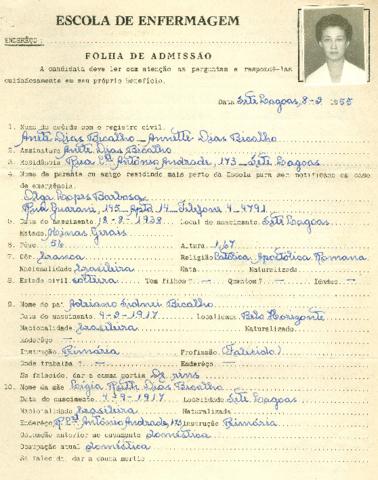 ESCOLA DE ENFERMAGEM
ENDERÊÇO:
FOLHA DE ADMISSÃO
A candidata deve ler com atenção as perguntas e respondê-las
cuidadosamente em seu próprio benefício.
Data Sete Lagoas, 8-2 1955
1. Nome de acôrdo com o registro civil.
Anete Dias Bicalho - Annette Dias Bicalho
2. Assinatura Anete Dias Bicalho
3. Residência Rua Cel Antônio Andrade, 173 - Sete Lagoas
4. Nome de parente ou amigo residindo mais perto da Escola para ser notificado em caso
de emergência.
Olga Lopes Barbosa
Rua Guarani, 145 - Aptd 14 - Telefone 4-4791
5. Data do Nascimento 18-8-1938 Local de nascimento Sete Lagoas
Estado Minas Gerais
6. Pêso: 56 Altura 1,67
7. Côr branca Religião Católica Apostólica Romana
Nacionalidade brasileira Nata Naturalizada
8. Estado civil solteira Tem filhos? - Quantos? - Idades: -
9. Nome do pai Adriano Bicalho
Data do nascimento 4-2-1917 Localidade Belo Horizonte
Nacionalidade brasileira Naturalizado
Enderêço -
Instrução Primária Profissão (Falecido)
Onde trabalha? - Enderêço -
Se falecido, dar a causa mortis De rins
10. Nome da mãe Dias Bicalho
Data do nascimento 4-9-1917 Localidade Sete Lagoas
Nacionalidade brasileira Naturalizada
Enderêço R. Cel Antônio Andrade, 173 Instrução Primária
Ocupação anterior ao casamento doméstica
Ocupação atual doméstica
Se falecida, dar a causa mortis